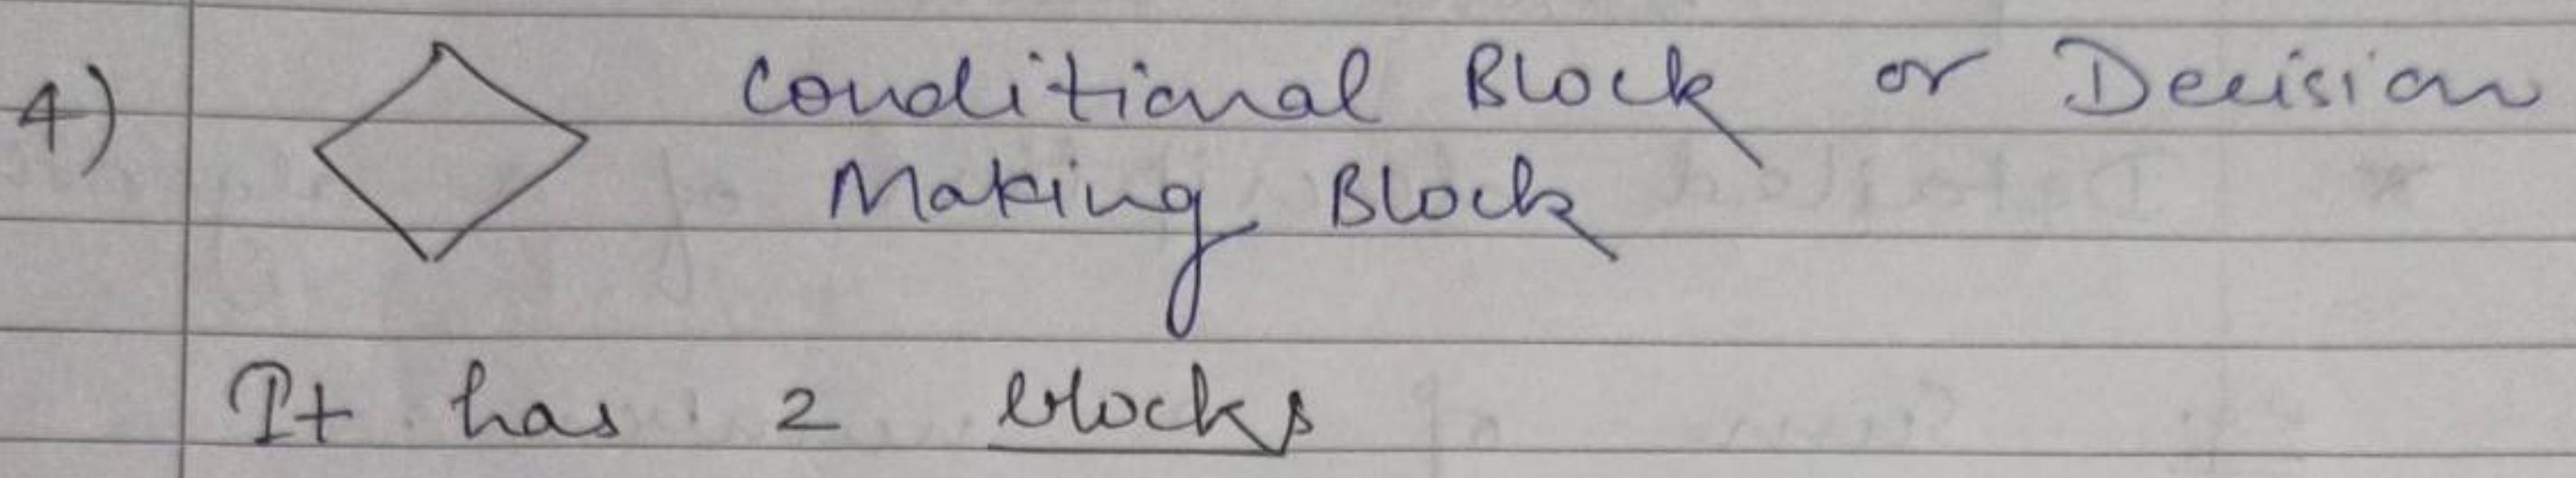 4) Conditional Block or Decision
Making Block
It has 2 blocks